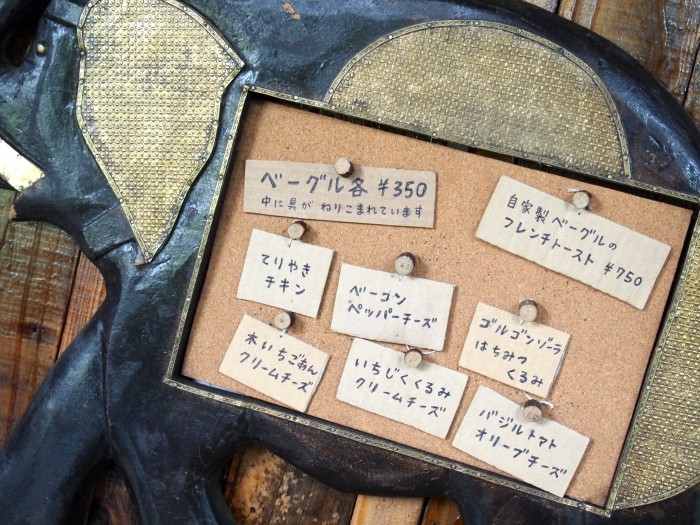 ベーグル各 ¥350
中に具が ねりこまれています
自家製ベーグルの
フレンチトースト ¥750
てりやき
チキン
ベーコン
ペッパーチーズ
ゴルゴンゾーラ
はちみつ
くるみ
木いちごあん
クリームチーズ
いちじくくるみ
クリームチーズ
バジルトマト
オリーブチーズ